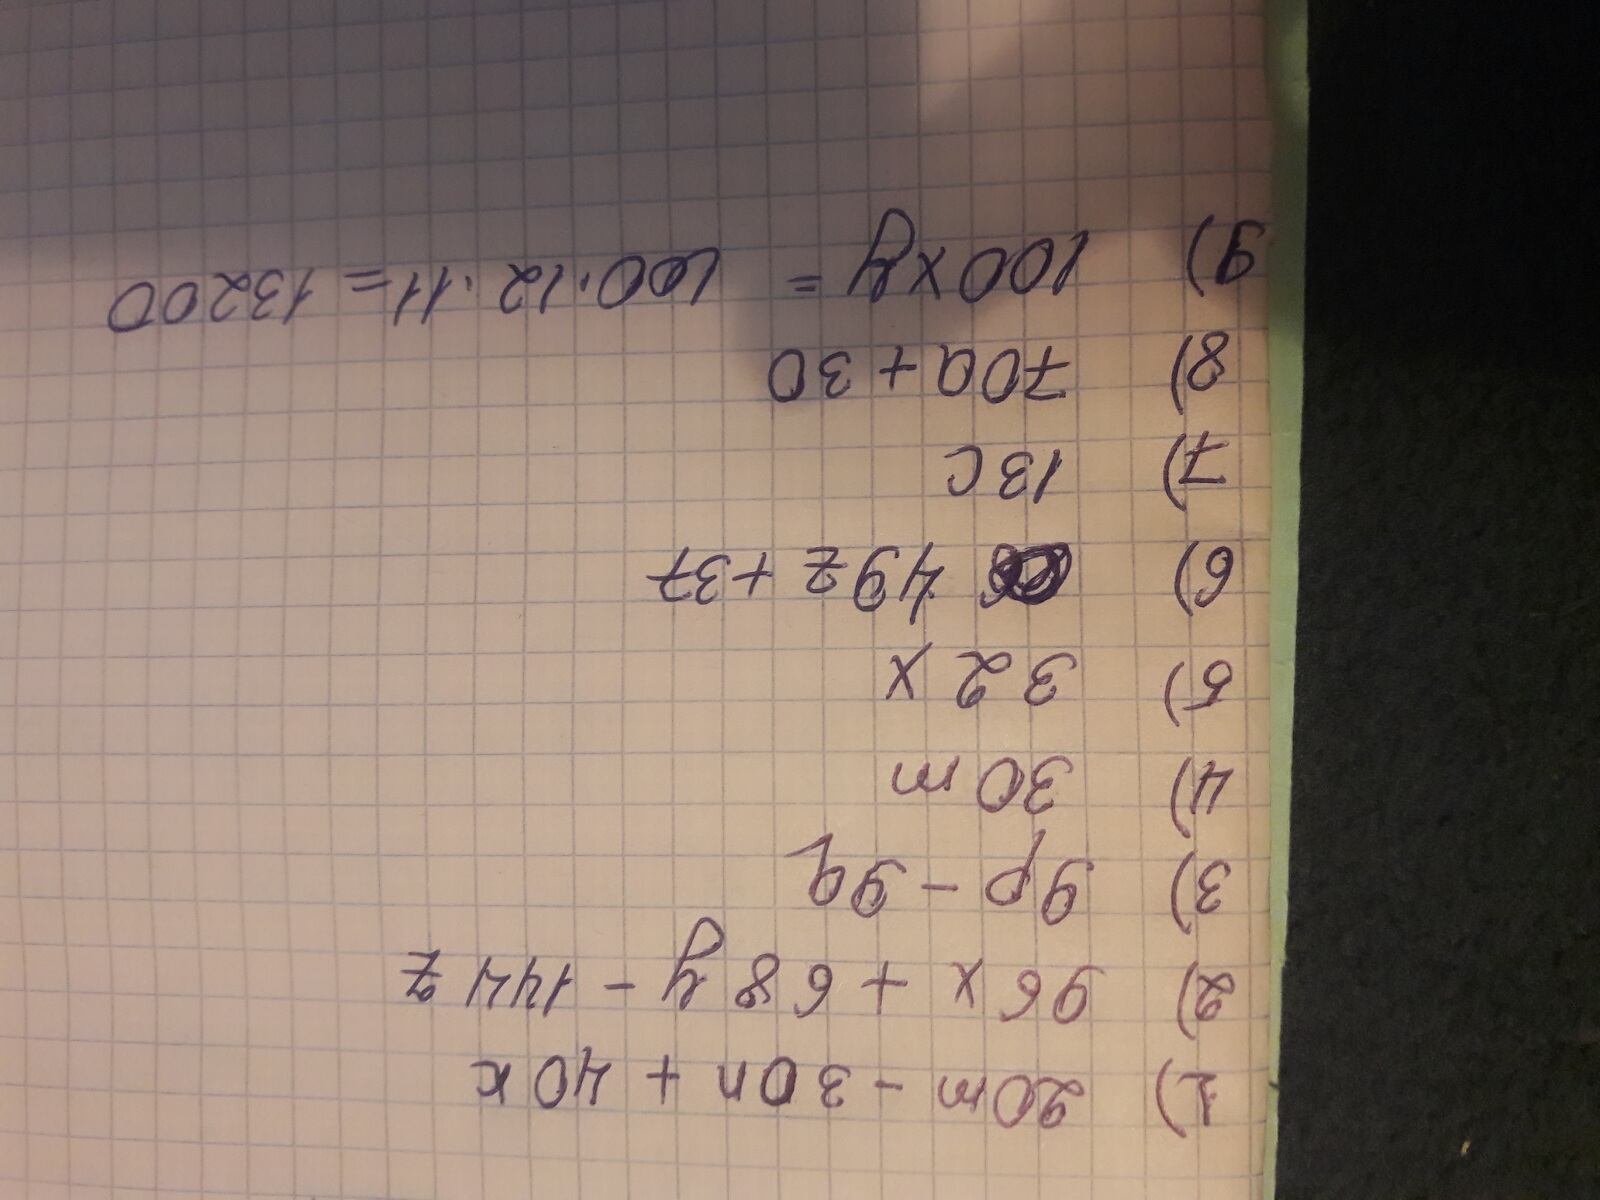 1) 20m - 30n + 40k
2) 96x + 68y - 144z
3) 9p - 9q
4) 30m
5) 32x
6) 49z + 37
7) 13c
8) 70a + 30
9) 100xy = 100·12·11 = 13200